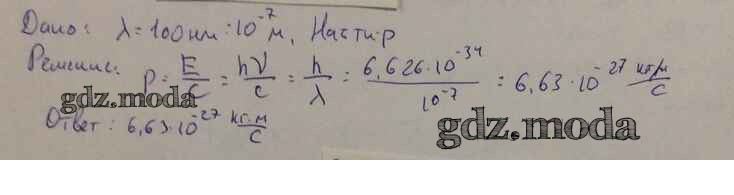 Дано: λ = 100 нм = 10⁻⁷ м, Найти p
Решение: p = E/c = hν/c = h/λ = 6,626·10⁻³⁴/10⁻⁷ = 6,63·10⁻²⁷ кг·м/с
gdz.moda
Ответ: 6,63·10⁻²⁷ кг·м/с
gdz.moda